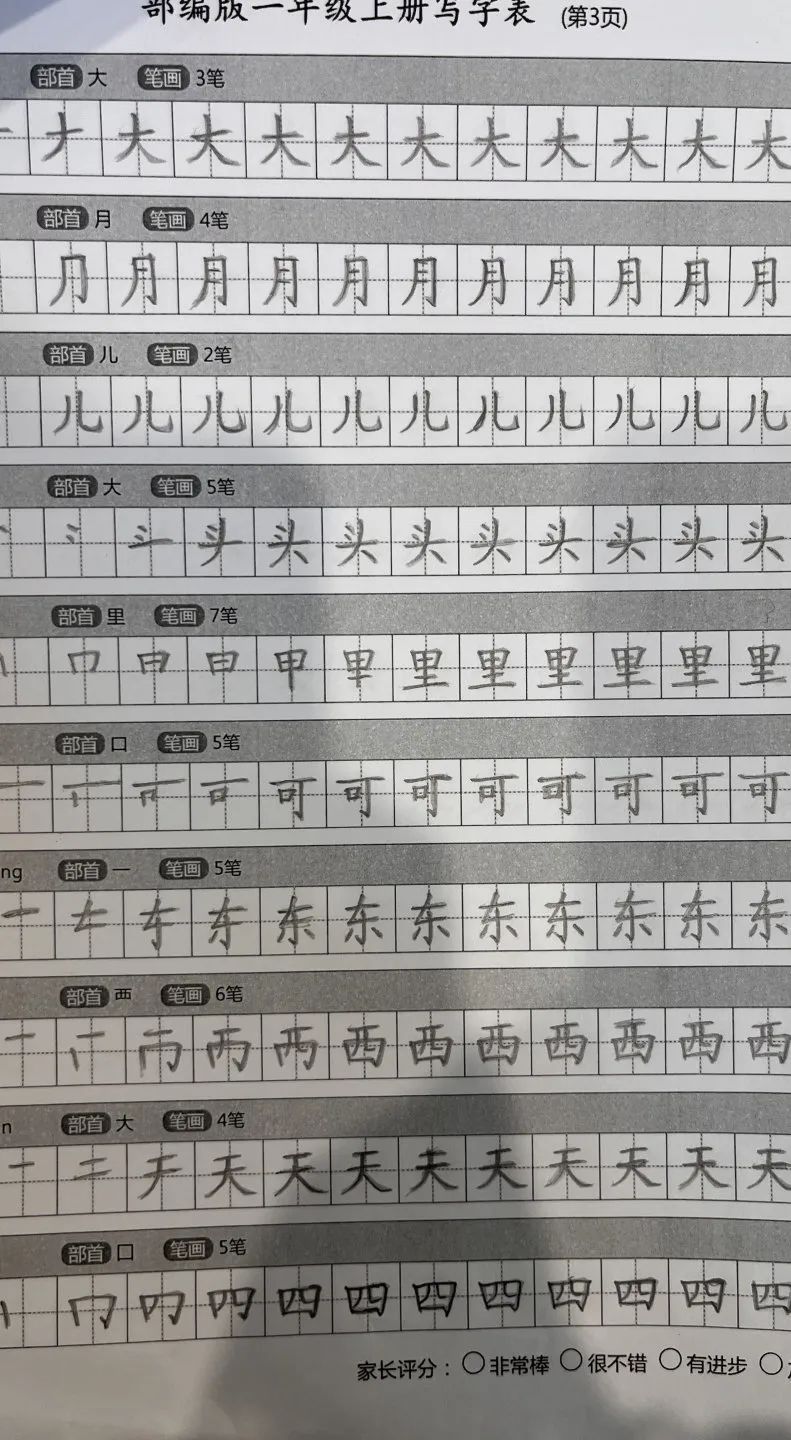 部编版一年级上册写字表 (第3页)
部首 大 笔画 3笔
一 ナ 大 大 大 大 大 大 大 大 大 大
部首 月 笔画 4笔
⺆ 月 月 月 月 月 月 月 月 月 月
部首 儿 笔画 2笔
儿 儿 儿 儿 儿 儿 儿 儿 儿 儿 儿
部首 大 笔画 5笔
头 头 头 头 头 头 头 头 头
部首 里 笔画 7笔
甲 里 里 里 里 里 里
部首 口 笔画 5笔
一 可 可 可 可 可 可 可 可
ng 部首 一 笔画 5笔
一 东 东 东 东 东 东 东 东
部首 西 笔画 6笔
一 丙 西 西 西 西 西 西 西
n 部首 大 笔画 4笔
一 二 天 天 天 天 天 天 天 天 天
部首 口 笔画 5笔
四 四 四 四 四 四 四 四
家长评分： ○非常棒 ○很不错 ○有进步 ○